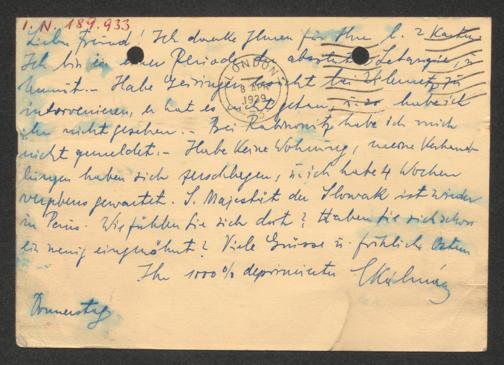 I. N. 189.933
Lieber Freund! Ich danke Ihnen für Ihre l. 2 Karten
Ich bin in einer Periode der absoluten Lethargie,
LONDON
8 APR
1939
hemmt. — Habe Geiringer
intervenieren, er hat es nicht getan, u. so habe ich
ihn nicht gesehen. — Bei Rabinovitz habe ich mich
nicht gemeldet. — Habe keine Wohnung, meine Verhand-
lungen haben sich zerschlagen, u. ich habe 4 Wochen
vergebens gewartet. S. Majestät der Slowak ist wieder
in Paris. Wie fühlen Sie sich dort? Haben Sie sich schon
ein wenig eingewöhnt? Viele Grüsse u. fröhliche Ostern
Ihr 1000% deprimierter
Donnerstag